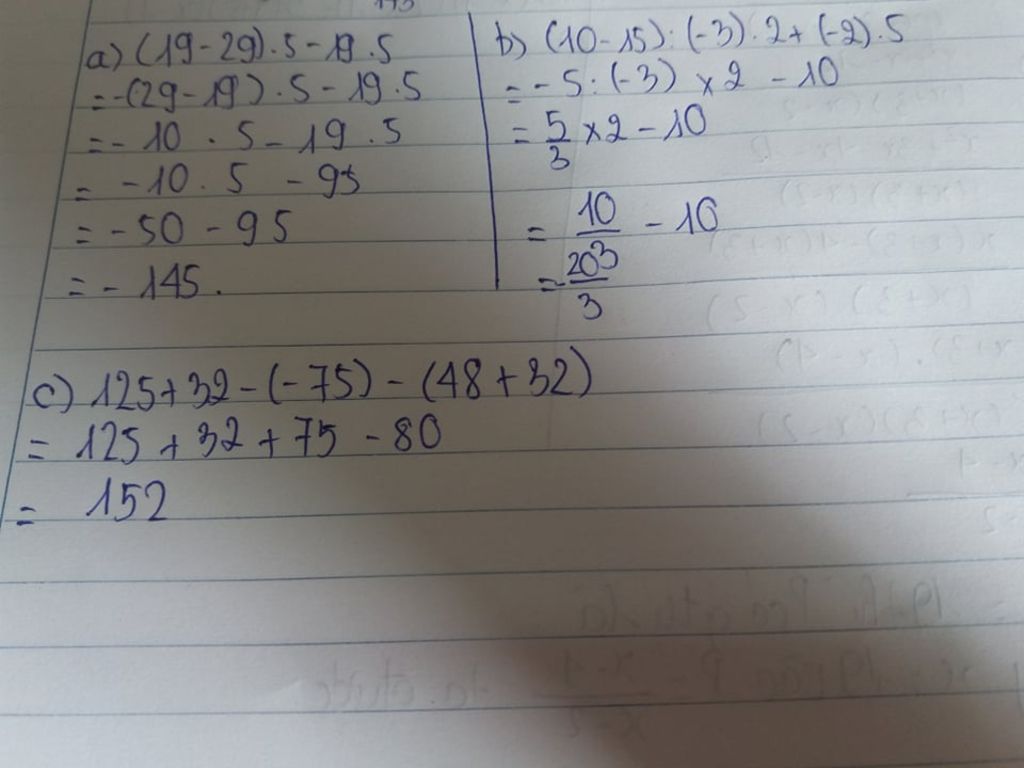 a) (19-29).5-19.5
=-(29-19).5-19.5
=-10.5-19.5
= -10.5 -95
= -50 - 95
= - 145.
b) (10-15):(-3).2+(-2).5
= -5:(-3) ×2 -10
= 5/3 ×2 -10
= 10/3 - 10
c) 125+32-(-75)-(48+32)
= 125 +32+75 -80
= 152